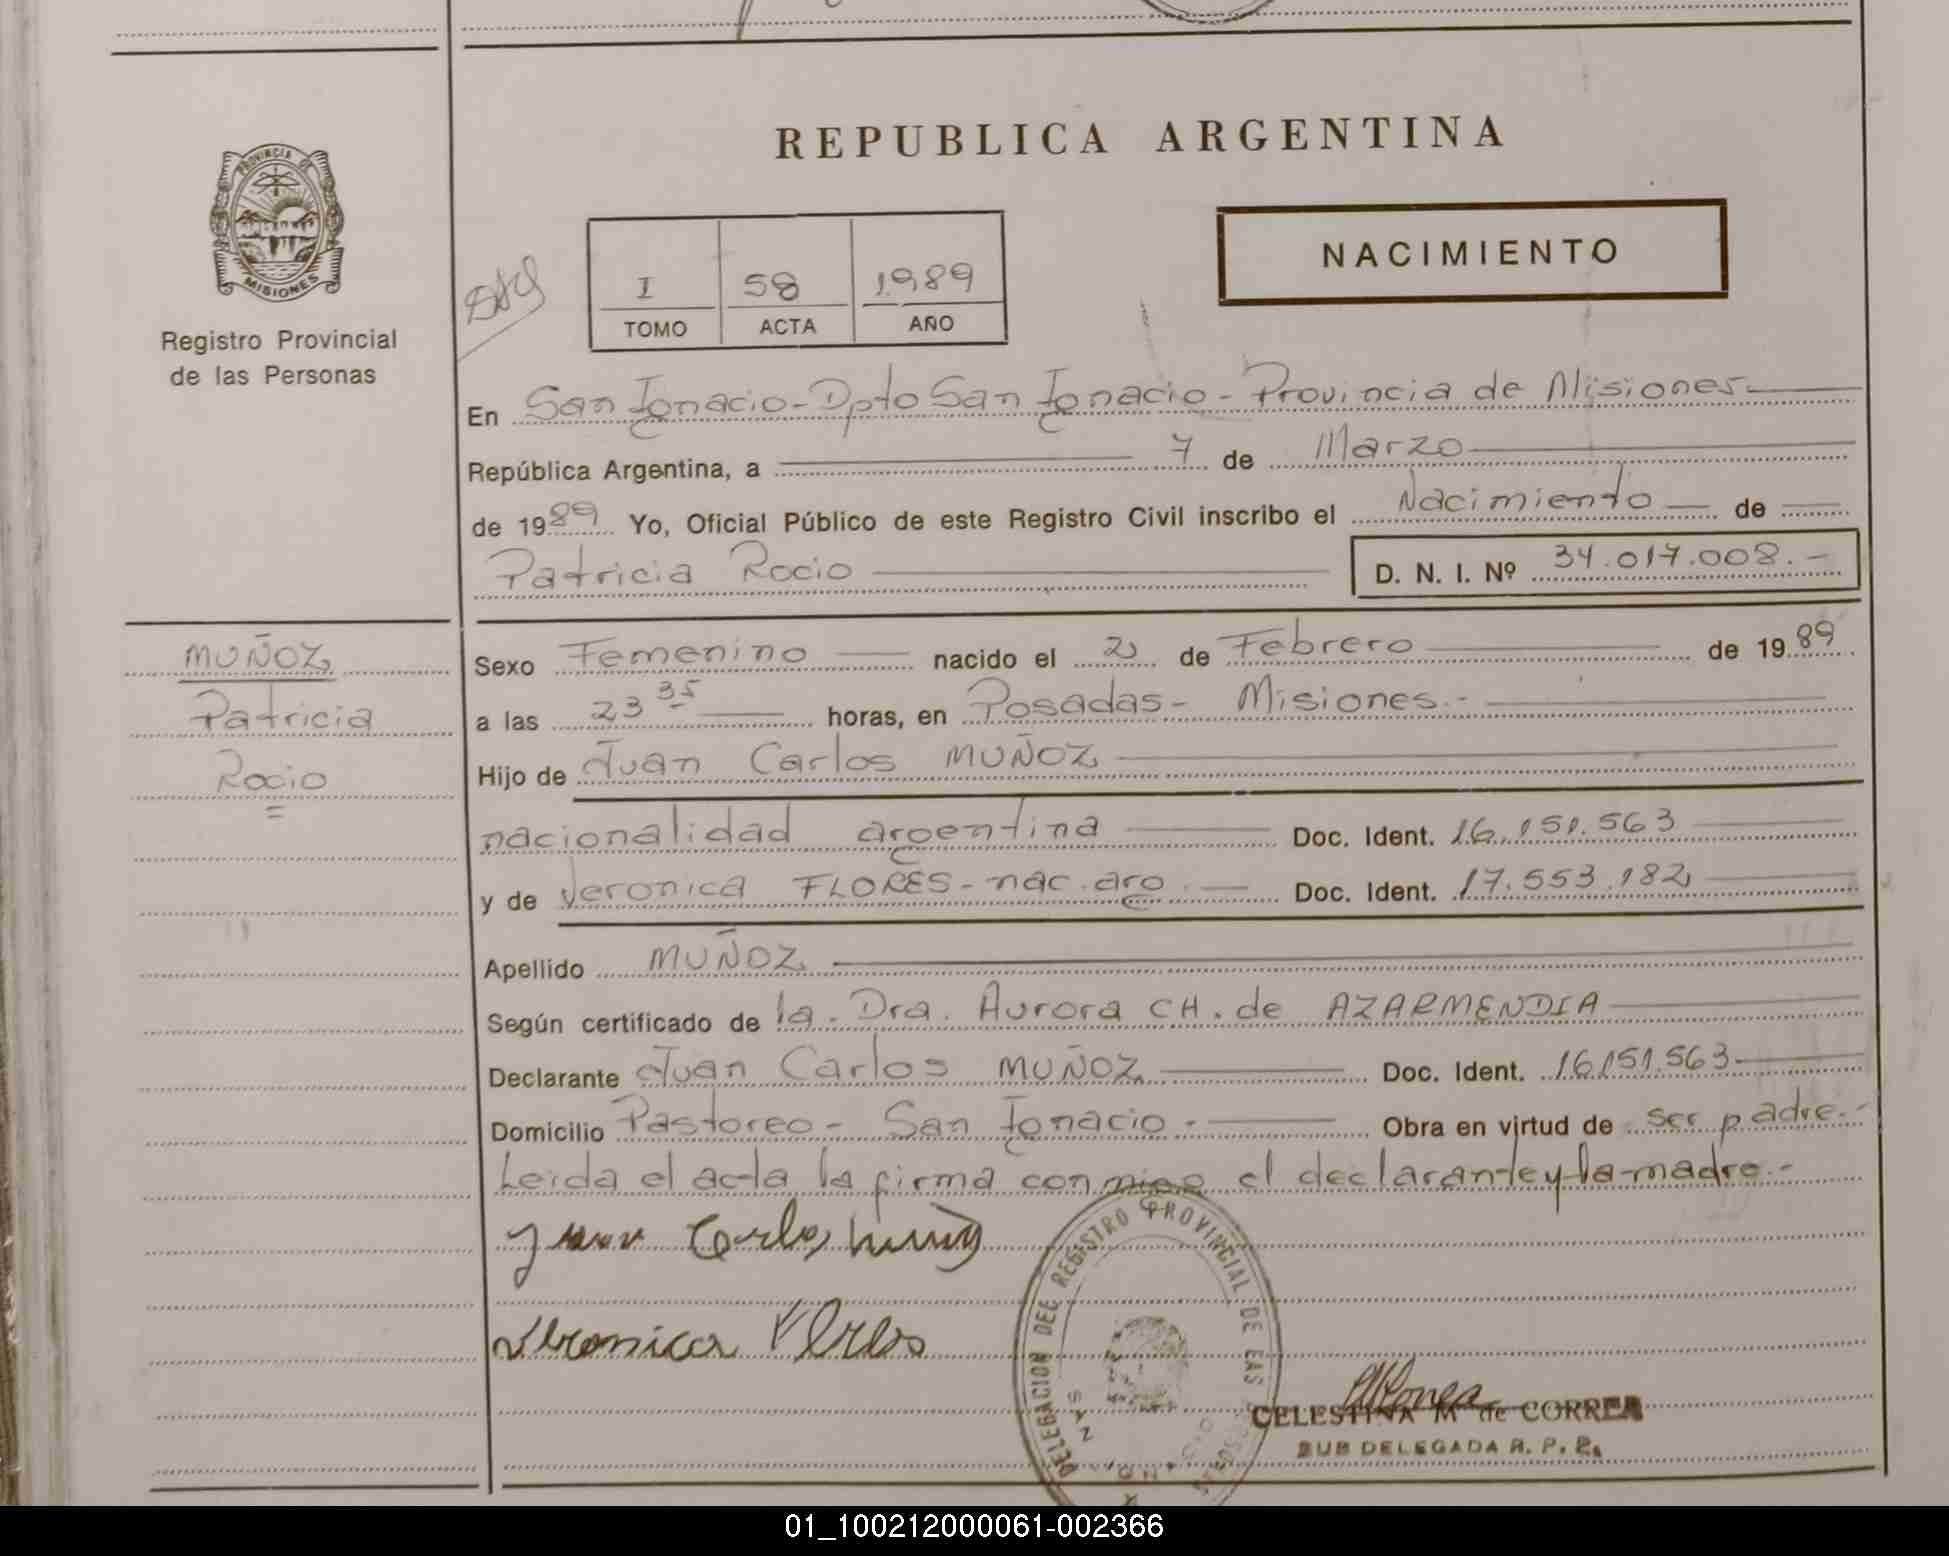 PROVINCIA DE
MISIONES
Registro Provincial
de las Personas
REPUBLICA ARGENTINA
NACIMIENTO
I 58 1989
TOMO ACTA AÑO
En San Ignacio - Dpto San Ignacio - Provincia de Misiones
República Argentina, a 7 de Marzo
de 1989 Yo, Oficial Público de este Registro Civil inscribo el Nacimiento de
Patricia Rocio D. N. I. Nº 34.017.008.-
MUÑOZ
Patricia
Rocio
Sexo Femenino nacido el 2 de Febrero de 1989
a las 23 35 horas, en Posadas - Misiones.-
Hijo de Juan Carlos MUÑOZ
nacionalidad argentina Doc. Ident. 16.151.563
y de Veronica FLORES - nac. arg. Doc. Ident. 17.553.182
Apellido MUÑOZ
Según certificado de la Dra. Aurora CH. de AZARMENDIA
Declarante Juan Carlos MUÑOZ Doc. Ident. 16.151.563
Domicilio Pastoreo - San Ignacio.- Obra en virtud de ser padre.-
Leida el acta la firma conmigo el declarante y la madre.-
Juan Carlos Muñoz
Veronica Flores
DELEGACION DEL REGISTRO PROVINCIAL DE LAS PERSONAS
SAN IGNACIO
CELESTINA Mª de CORREA
SUB DELEGADA R. P. P.
01_100212000061-002366